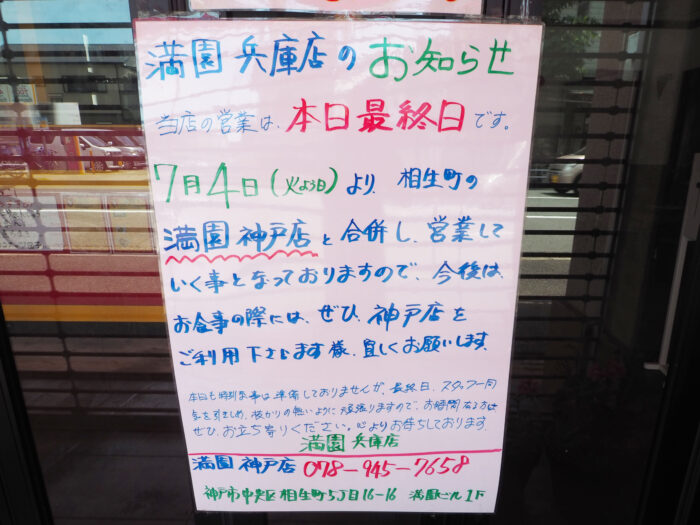 満園 兵庫店のお知らせ
当店の営業は、本日最終日です。
7月4日(火よう日)より、相生町の
満園 神戸店と合併し、営業して
いく事となっておりますので、今後は
お食事の際には、ぜひ、神戸店を
ご利用下さいます様、宜しくお願いします。
本日も特別食事は準備しておりませんが、最終日、スタッフ一同
気を引きしめ、抜かりの無いように頑張りますので、お時間有る方は
ぜひ、お立ち寄りください。心よりお待ちしております。
満園 兵庫店
満園 神戸店 078-945-7658
神戸市中央区相生町5丁目16-16 満園ビル1F